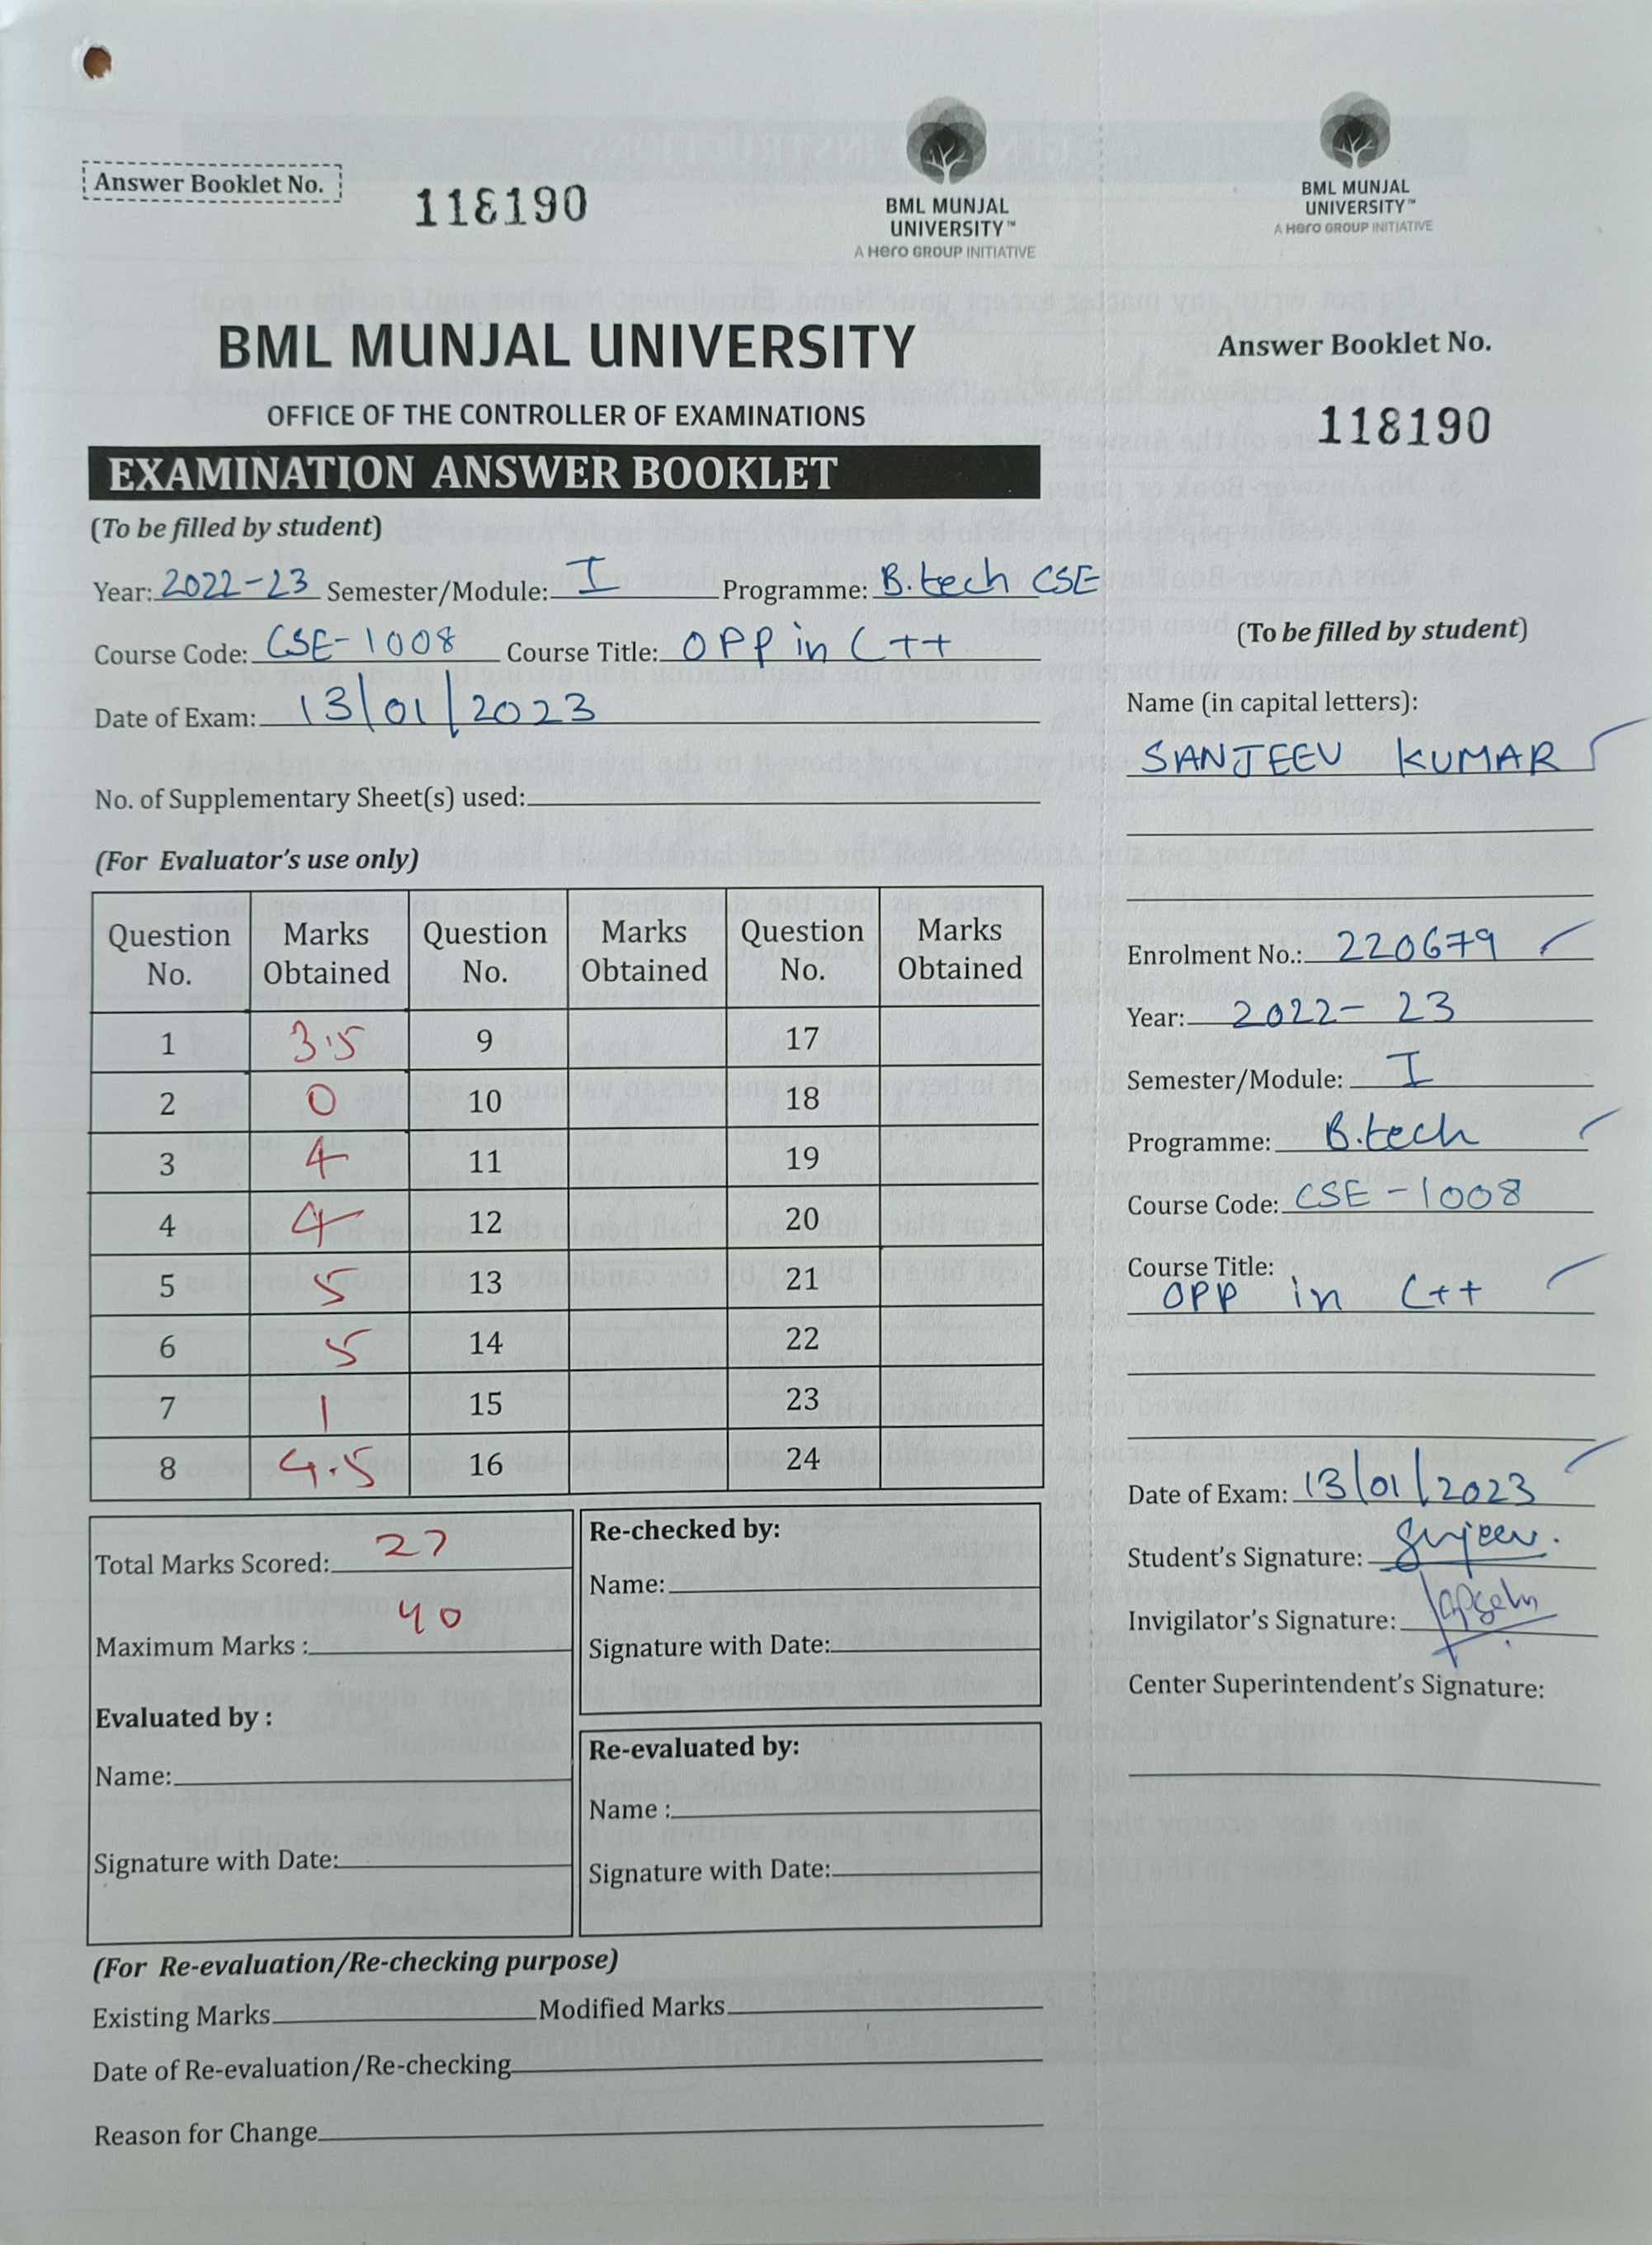 Answer Booklet No.
118190
BML MUNJAL
UNIVERSITY™
A Hero GROUP INITIATIVE
BML MUNJAL
UNIVERSITY™
A Hero GROUP INITIATIVE
BML MUNJAL UNIVERSITY
OFFICE OF THE CONTROLLER OF EXAMINATIONS
EXAMINATION ANSWER BOOKLET
(To be filled by student)
Year: 2022-23 Semester/Module: I Programme: B.tech CSE
Course Code: CSE-1008 Course Title: OPP in C++
Date of Exam: 13/01/2023
No. of Supplementary Sheet(s) used:
(For Evaluator's use only)
Question No. Marks Obtained Question No. Marks Obtained Question No. Marks Obtained
1 3.5 9 17
2 0 10 18
3 4 11 19
4 4 12 20
5 5 13 21
6 5 14 22
7 1 15 23
8 4.5 16 24
Total Marks Scored: 27
Maximum Marks : 40
Evaluated by :
Name:
Signature with Date:
Re-checked by:
Name:
Signature with Date:
Re-evaluated by:
Name :
Signature with Date:
(For Re-evaluation/Re-checking purpose)
Existing Marks Modified Marks
Date of Re-evaluation/Re-checking
Reason for Change
Answer Booklet No.
118190
(To be filled by student)
Name (in capital letters):
SANJEEV KUMAR
Enrolment No.: 220679
Year: 2022-23
Semester/Module: I
Programme: B.tech
Course Code: CSE-1008
Course Title:
OPP in C++
Date of Exam: 13/01/2023
Student's Signature:
Invigilator's Signature:
Center Superintendent's Signature: